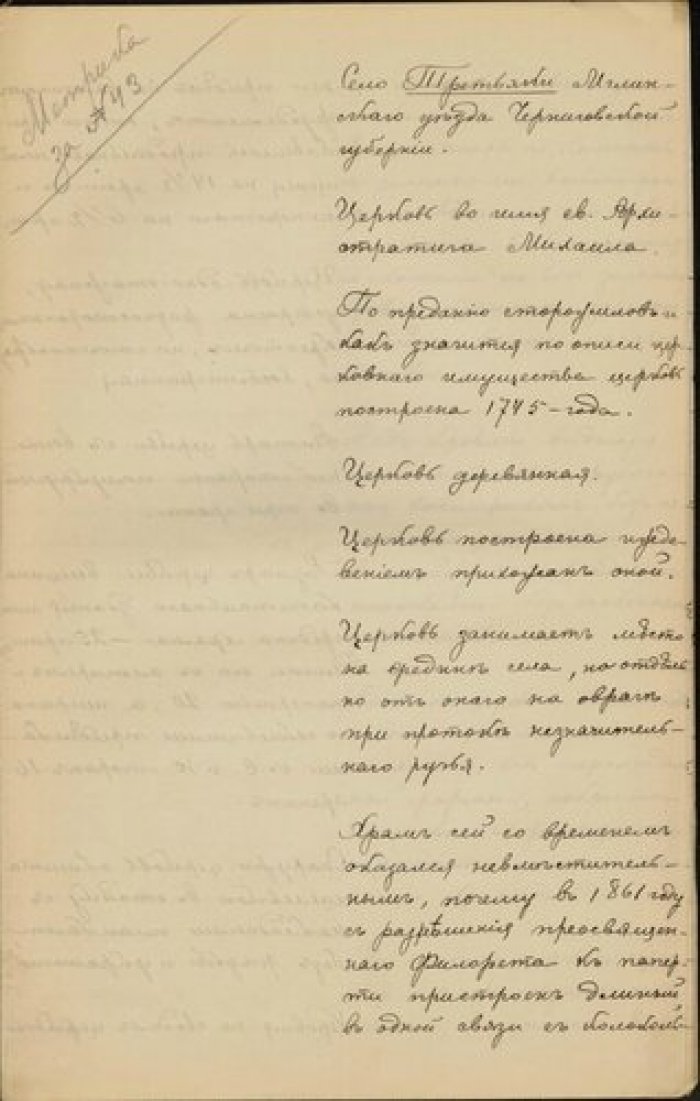 Метрика
за № 43
Село Третьяки Мглин-
скаго уѣзда Черниговской
губерніи.
Церковь во имя св. Архи-
стратига Михаила.
По преданію старожиловъ и
какъ значится по описи цер-
ковнаго имущества церковь
построена 1745 - года.
Церковь деревянная.
Церковь построена ижде-
веніемъ прихожанъ оной.
Церковь занимаетъ мѣсто
на срединѣ села, но отдѣль
но отъ онаго на оврагѣ
при протокѣ незначитель-
наго ручья.
Храмъ сей со временемъ
оказался невмѣститель-
нымъ, почему въ 1861 году
съ разрѣшенія преосвящен-
наго Филарета къ папер-
ти пристроенъ длиный,
въ одной связи съ колоколь-